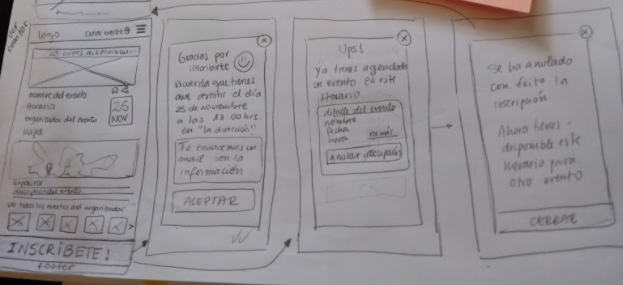 Ver eventos
logo
crear evento
20 cupos disponibles
nombre del evento
Horario
organizador del evento
25
NOV
mapa
ver todos los eventos del organizador
INSCRÍBETE!
footer
Gracias por
inscribirte
Recuerda que tienes
que asistir el día
25 de noviembre
a las 18:00 hrs.
en "la dirección"
Te enviaremos un
mail con la
información
ACEPTAR
Ups!
ya tienes agendado
un evento en este
Horario
detalle del evento
nombre
fecha
hora
ver más
anular inscripción
Se ha anulado
con éxito la
inscripción
Ahora tienes
disponible este
horario para
otro evento
CERRAR